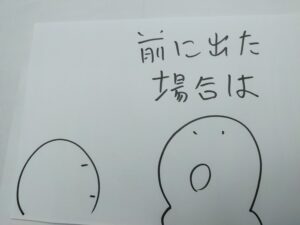 前に出た
場合は